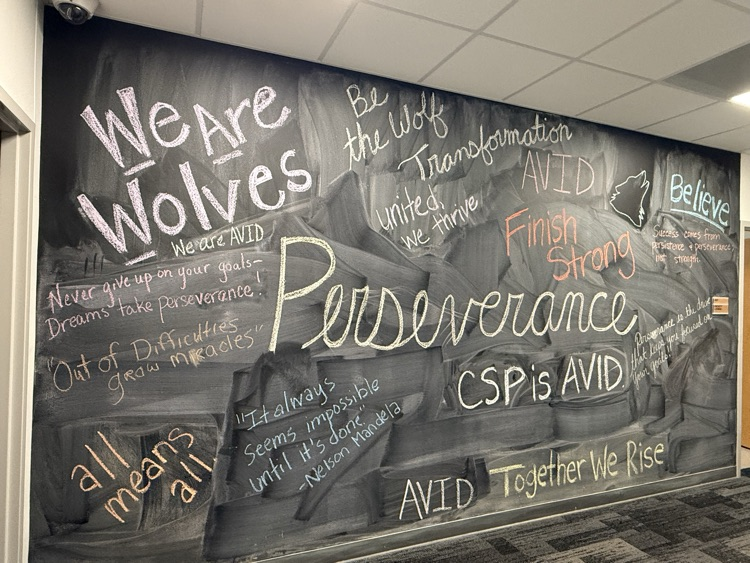 We Are
Wolves
We are AVID
Never give up on your goals-
Dreams take perseverance!
"Out of Difficulties
grow miracles"
all
means
all
Be
the Wolf
Transformation
united,
we thrive
AVID
Finish
Strong
Believe
Success comes from
persistence & perseverance,
not strength.
Perseverance
Perseverance is the drive
that keeps you focused on
your goals!
CSP is AVID.
"It always
seems impossible
until it's done"
-Nelson Mandela
AVID
Together We Rise